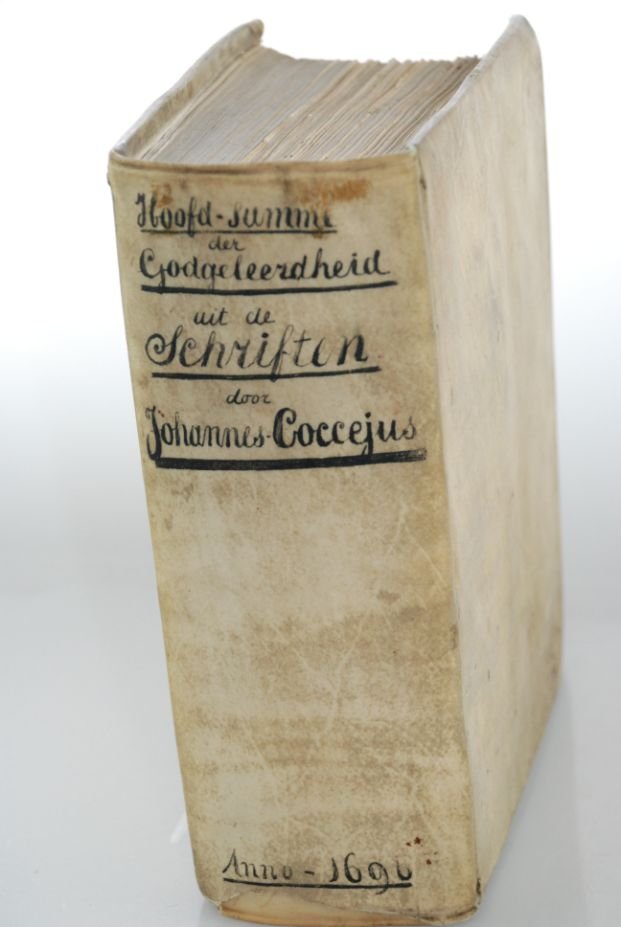 Hoofd-Summe
der
Godgeleerdheid
uit de
Schriften
door
Johannes-Coccejus
Anno-1696